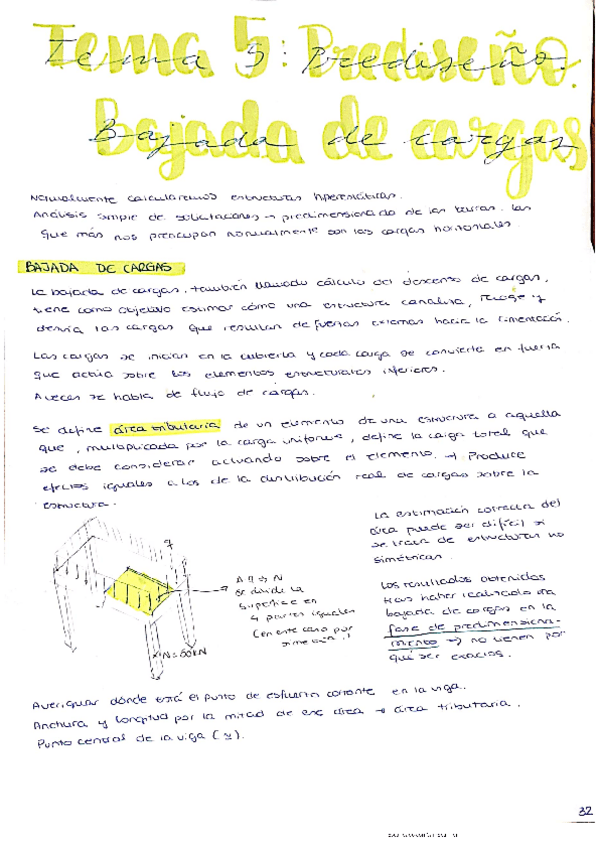 Tema 5: Prediseño.
Bajada de cargas
Normalmente calcularemos estructuras hiperestáticas.
Análisis simple de solicitaciones → predimensionado de las vigas. Las
que más nos preocupan normalmente son las cargas horizontales.
BAJADA DE CARGAS
La bajada de cargas, también llamado cálculo del descenso de cargas,
tiene como objetivo estimar cómo una estructura canaliza, recoge y
desvía las cargas que resultan de fuerzas externas hacia la cimentación.
Las cargas se inician en la cubierta y cada carga se convierte en fuerza
que actúa sobre los elementos estructurales inferiores.
A veces se habla de flujo de cargas.
Se define área tributaria de un elemento de una estructura a aquella
que, multiplicada por la carga uniforme, define la carga total que
se debe considerar actuando sobre el elemento. → Produce
efectos iguales a los de la distribución real de cargas sobre la
estructura.
La estimación correcta del
área puede ser difícil si
se trata de estructuras no
simétricas.
q
A q → N
se divide la
superficie en
4 partes iguales
(en este caso por
simetría)
N=50kN
Los resultados obtenidos
tras haber realizado una
bajada de cargas en la
fase de predimensiona-
miento → no tienen por
qué ser exactos.
Averiguar dónde está el punto de esfuerzo cortante en la viga.
Anchura y longitud por la mitad de ese área → área tributaria.
Punto central de la viga
32